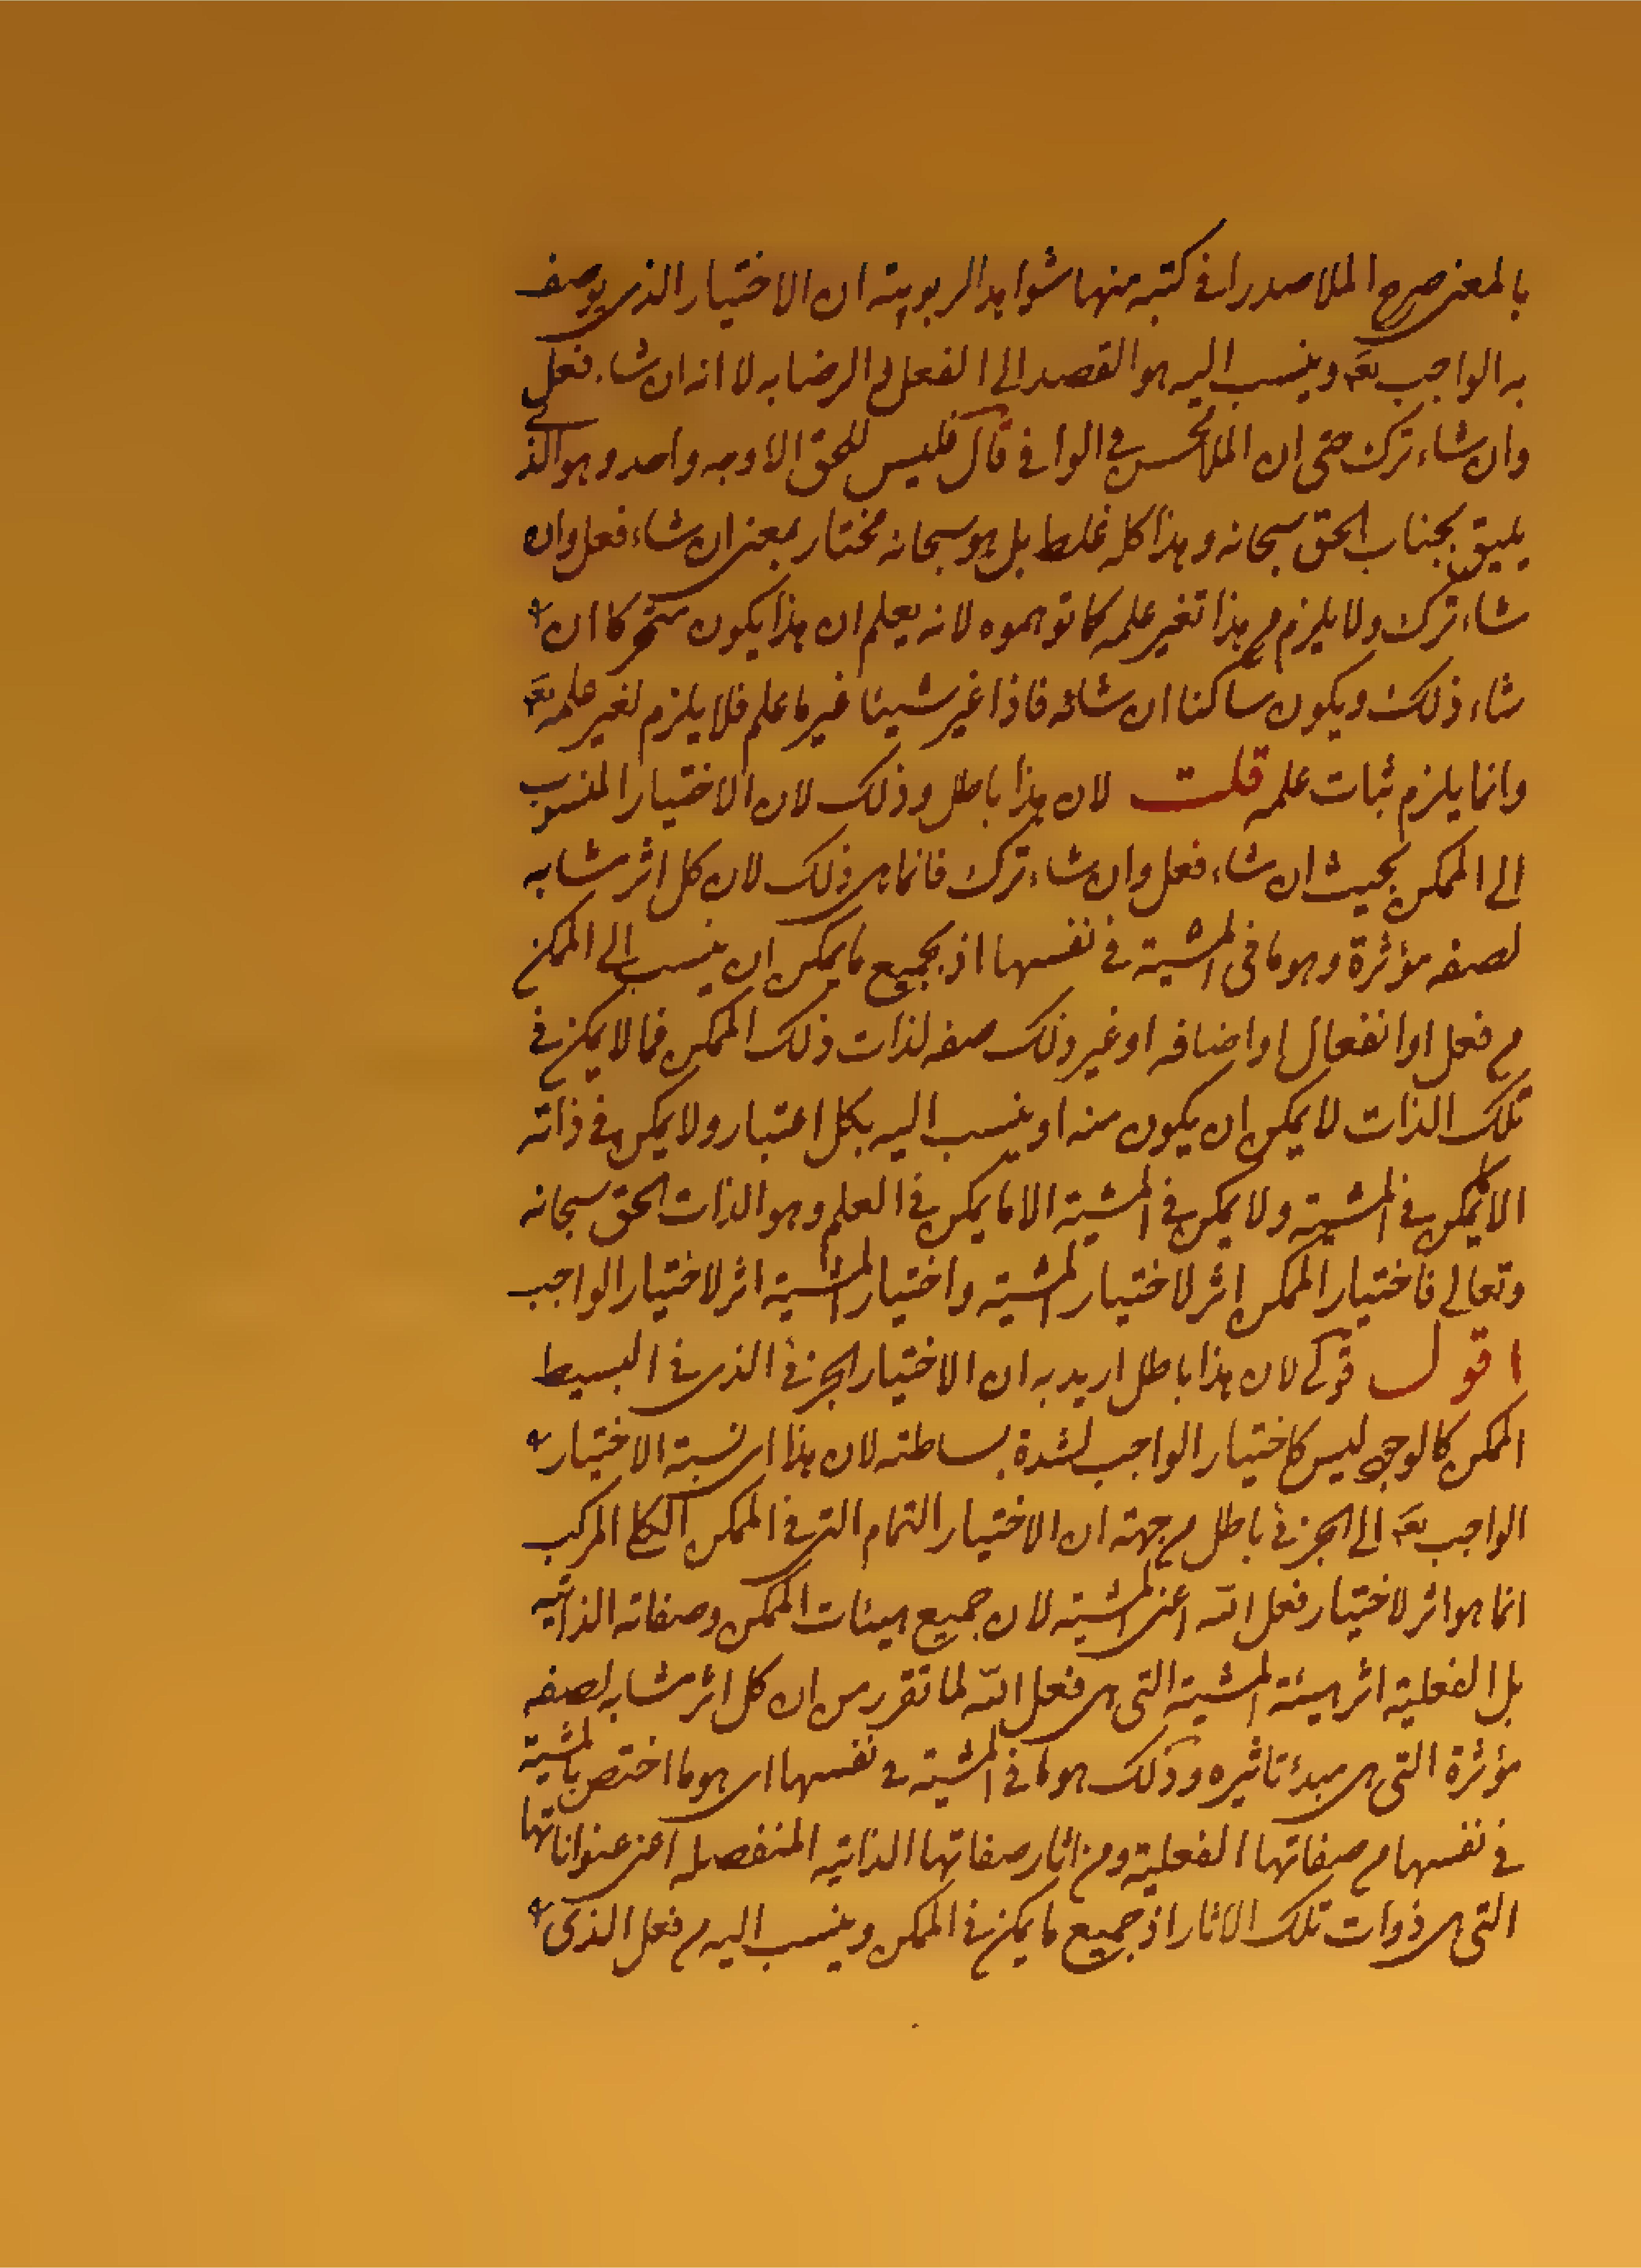 بالمعنى صرح الملا صدرا في كتبه منها شواهد الربوبية ان الاختيار الذي يوصف
به الواجب تع وينسب اليه هو القصد الى الفعل و الرضا به لا انه ان شاء فعل
وان شاء ترك حتى ان الملا محسن في الوافي قال فليس للحق الا وجه واحد وهو الذي
يليق بجناب الحق سبحانه وهذا كله غلط بل هو سبحانه مختار بمعنى ان شاء فعل وان
شاء ترك ولا يلزم من هذا تغير علمه كما توهموه لانه يعلم ان هذا يكون متحركا ان
شاء ذلك ويكون ساكنا ان شائه فاذا غير شيئا غير ما علم فلا يلزم تغير علمه تع
وانما يلزم ثبات علمه قلت لان هذا باطل وذلك لان الاختيار المنسوب
الى الممكن بحيث ان شاء فعل وان شاء ترك فانما هي ذلك لان كل اثر مشابه
لصفه مؤثرة وهو ما في المشية في نفسها اذ بجميع ما يمكن ان ينسب الى الممكن
من فعل او انفعال او اضافه او غير ذلك صفه لذات ذلك الممكن فما لا يمكن في
تلك الذات لا يمكن ان يكون منه او ينسب اليه بكل اعتبار ولا يمكن في ذاته
الا ما يمكن في المشية ولا يمكن في المشية الا ما يمكن في العلم وهو الذات الحق سبحانه
وتعالى فاختيار الممكن اثر لاختيار المشية واختيار المشية اثر لاختيار الواجب
اقول قولي لان هذا باطل اريد به ان الاختيار الجزئي الذي في البسيط
الممكن كالوجود ليس كاختيار الواجب لشدة بساطته لان هذا اي نسبة الاختيار
الواجب تع الى الجزئي باطل من جهة ان الاختيار التمام التي في الممكن الكلي المركب
انما هو اثر لاختيار فعل الله اعني المشية لان جميع هيئات الممكن وصفاته الذاتيه
بل الفعلية اثر هيئة المشية التي هي فعل الله لما تقرر من ان كل اثر مشابه لصفه
مؤثرة التي هي مبدء تاثيره وذلك هو ما في المشية في نفسها اي هو ما اختص بالمشية
في نفسها من صفاتها الفعلية ومن اثار صفاتها الذاتيه المنفصله اعني عنواناتها
التي هي ذوات تلك الاثار اذ جميع ما يمكن في الممكن وينسب اليه من فعل الذي